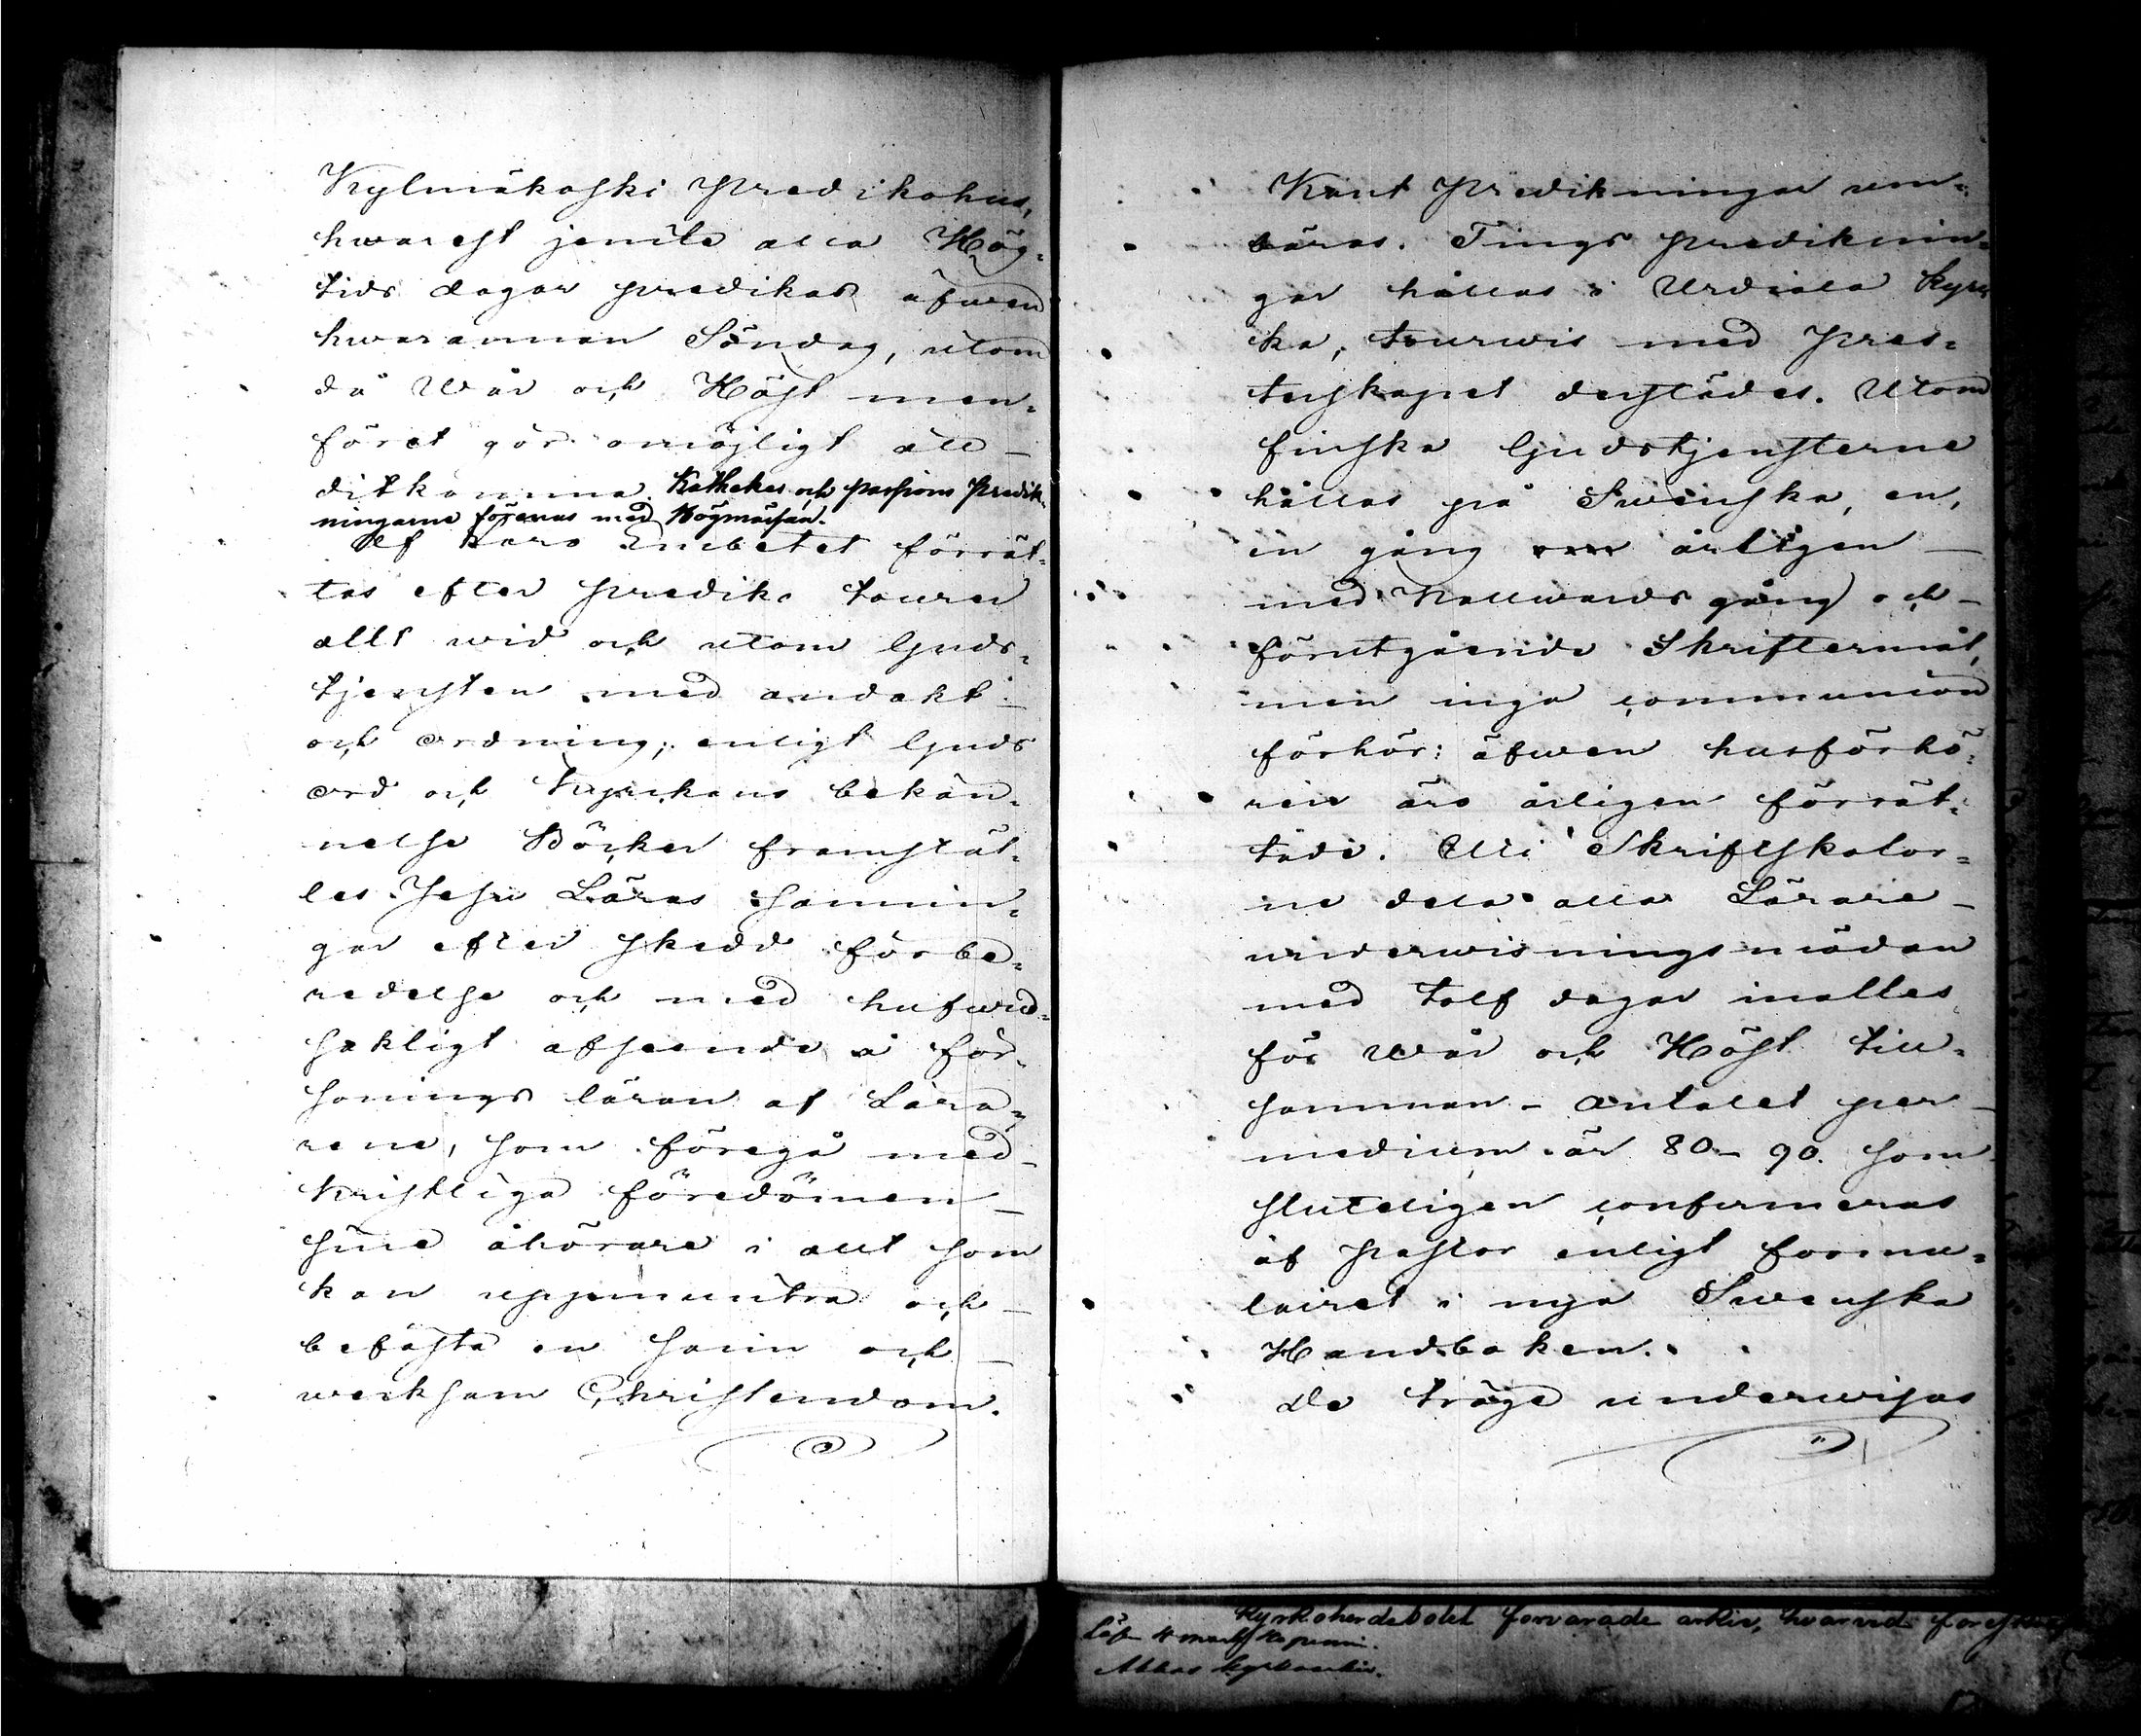 Kylmäkoski Predikohus,
hwarest jemte alla Hög=
tids dagar predikas äfwen
hwarannan Söndag, utom
då Wår och Höst men=
föret gör omöjligt att
ditkomma. Kathekes och passions Predik=
ningarne förenas med Högmässan.
Embetet förrät=
tas efter prediko tourer
allt wid och utom Guds=
tjensten med andakt
och ordning; enligt Guds
ord och Kyrckans bekän=
nelse Böcker framstäl=
les Jesu Läras sannin=
gar efter skedd förbe=
redelse och med hufwud=
sakligt afseende å för=
sonings läran af Lära=
rene, som föregå med
kristliga föredömen
sine åhörare i allt som
kan uppmuntra och
befästa en sann och
werksam Christendom.
Kant Predikningar um=
bäras. Tings prediknin=
gar hållas i Urdiala Kyrc
ka, tourwis med Pres=
terskapet derstädes. Utom
finska Gudstjensterne
hållas på Swenska, en,
en gång årligen
med Nattwards gång och
förutgående Skriftermål,
men inga communion
förhör: äfwen husförhö=
ren äro årligen förrät=
tade. Uti Skriftskolor=
ne dela alla Lärare
underwisningsmödan
med tolf dagar inalles
för Wår och Höst till=
samman – antalet per
medium är 80 – 90. som
sluteligen confirmeras
af Pastor enligt formu=
lairet i nya Swenska
Handboken.
De tröge underwisas
Kyrkoherdebolet förvarade arkiv, hvarvid
Akkas kyrkoarkiv.